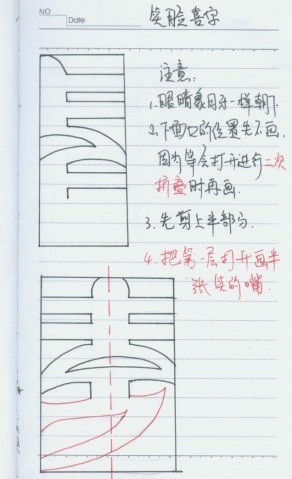 NO
Date
笑脸喜字
注意:
1.眼睛象月牙一样朝下.
2.下面口的位置先不画.
因为等会打开进行二次
折叠时再画.
3.先剪上半部分.
4.把第一层打开画半
张笑的嘴